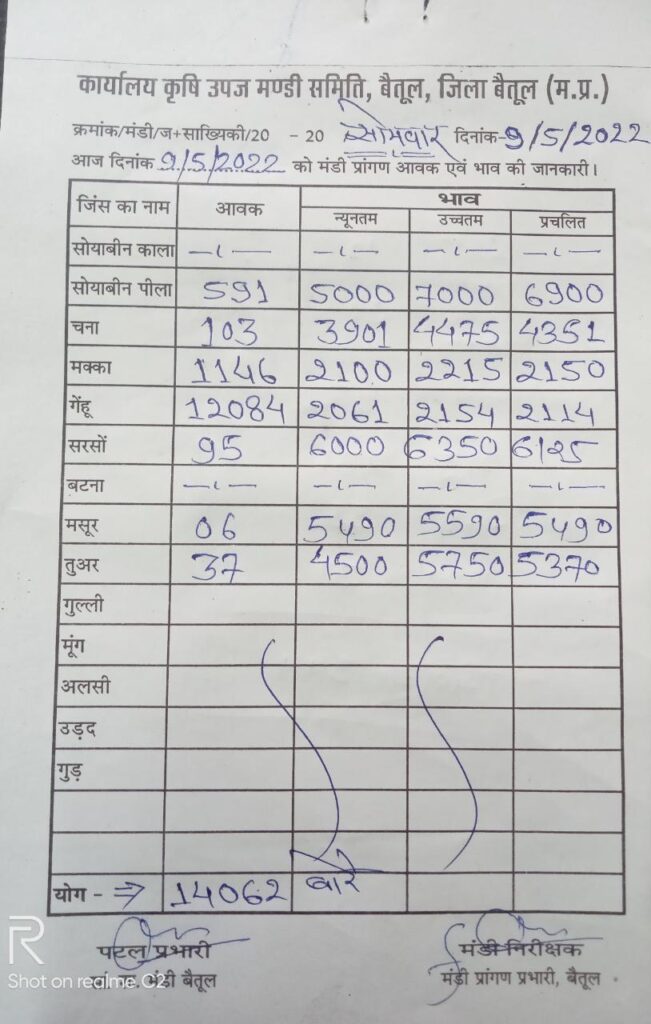 कार्यालय कृषि उपज मण्डी समिति, बैतूल, जिला बैतूल (म.प्र.)
क्रमांक/मंडी/ज+साख्यिकी/20 - 20 सोमवार दिनांक-9/5/2022
आज दिनांक 9/5/2022 को मंडी प्रांगण आवक एवं भाव की जानकारी।
जिंस का नाम आवक भाव
न्यूनतम उच्चतम प्रचलित
सोयाबीन काला —।— —।— —।— —।—
सोयाबीन पीला 591 5000 7000 6900
चना 103 3901 4475 4351
मक्का 1146 2100 2215 2150
गेंहू 12084 2061 2154 2114
सरसों 95 6000 6350 6125
बटना —।— —।— —।— —।—
मसूर 06 5490 5590 5490
तुअर 37 4500 5750 5370
गुल्ली
मूंग
अलसी
उड़द
गुड़
योग - ⇒ 14062 बोरे
पटल प्रभारी मंडी निरीक्षक
मंडी बैतूल मंडी प्रांगण प्रभारी, बैतूल
R
Shot on realme C2